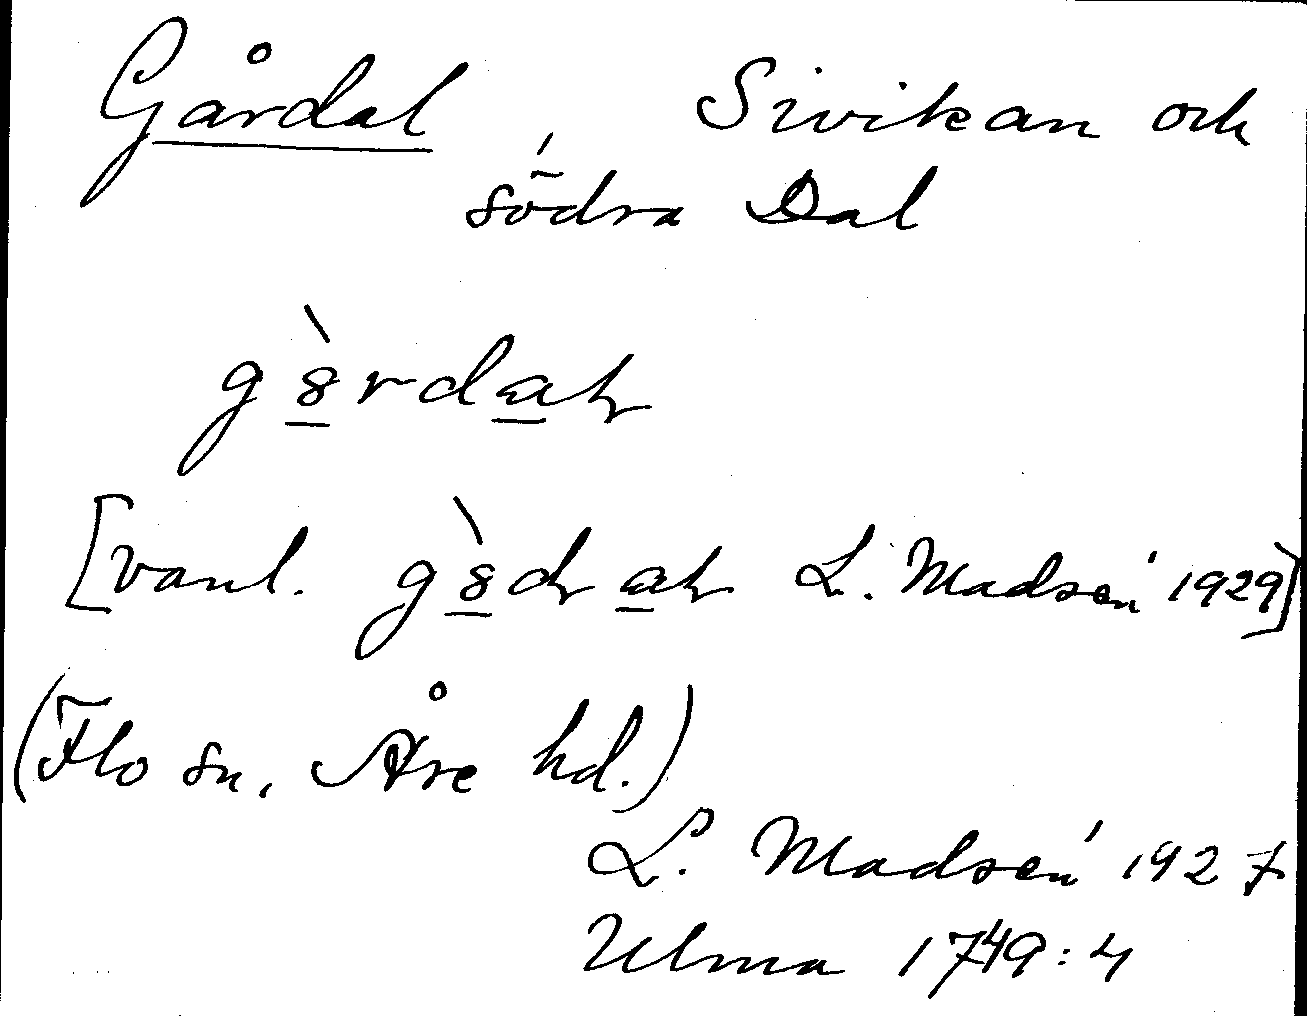 Gårdal, Sivikan och
södra Dal
g8̲̀rda̲ɽ
[vanl. g8̲̀dɽa̲ɽ L. Madsén 1929]
(Flo sn, Åre hd.)
L. Madsén 1927
Ulma 1749:4